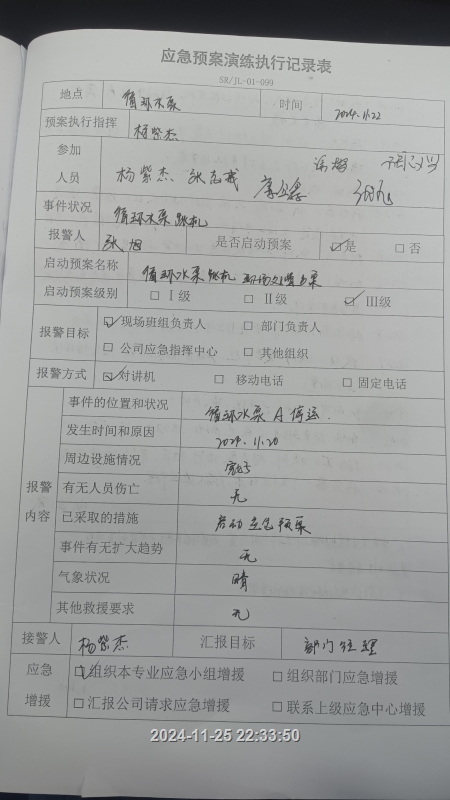 应急预案演练执行记录表
SR/JL-01-099
地点 循环水泵 时间 2024.11.22
预案执行指挥 杨紫杰
参加人员 杨紫杰、张志武
事件状况 循环水泵跳机
报警人 张旭 是否启动预案 ☑是 □否
启动预案名称 循环水泵跳机现场处置方案
启动预案级别 □Ⅰ级 □Ⅱ级 ☑Ⅲ级
报警目标 ☑现场班组负责人 □部门负责人
□公司应急指挥中心 □其他组织
报警方式 ☑对讲机 □移动电话 □固定电话
报警内容
事件的位置和状况 循环水泵A停运.
发生时间和原因 2024.11.20
周边设施情况 完好
有无人员伤亡 无
已采取的措施 启动应急预案
事件有无扩大趋势 无
气象状况 晴
其他救援要求 无
接警人 杨紫杰 汇报目标 部门经理
应急增援 ☑组织本专业应急小组增援 □组织部门应急增援
□汇报公司请求应急增援 □联系上级应急中心增援
2024-11-25 22:33:50